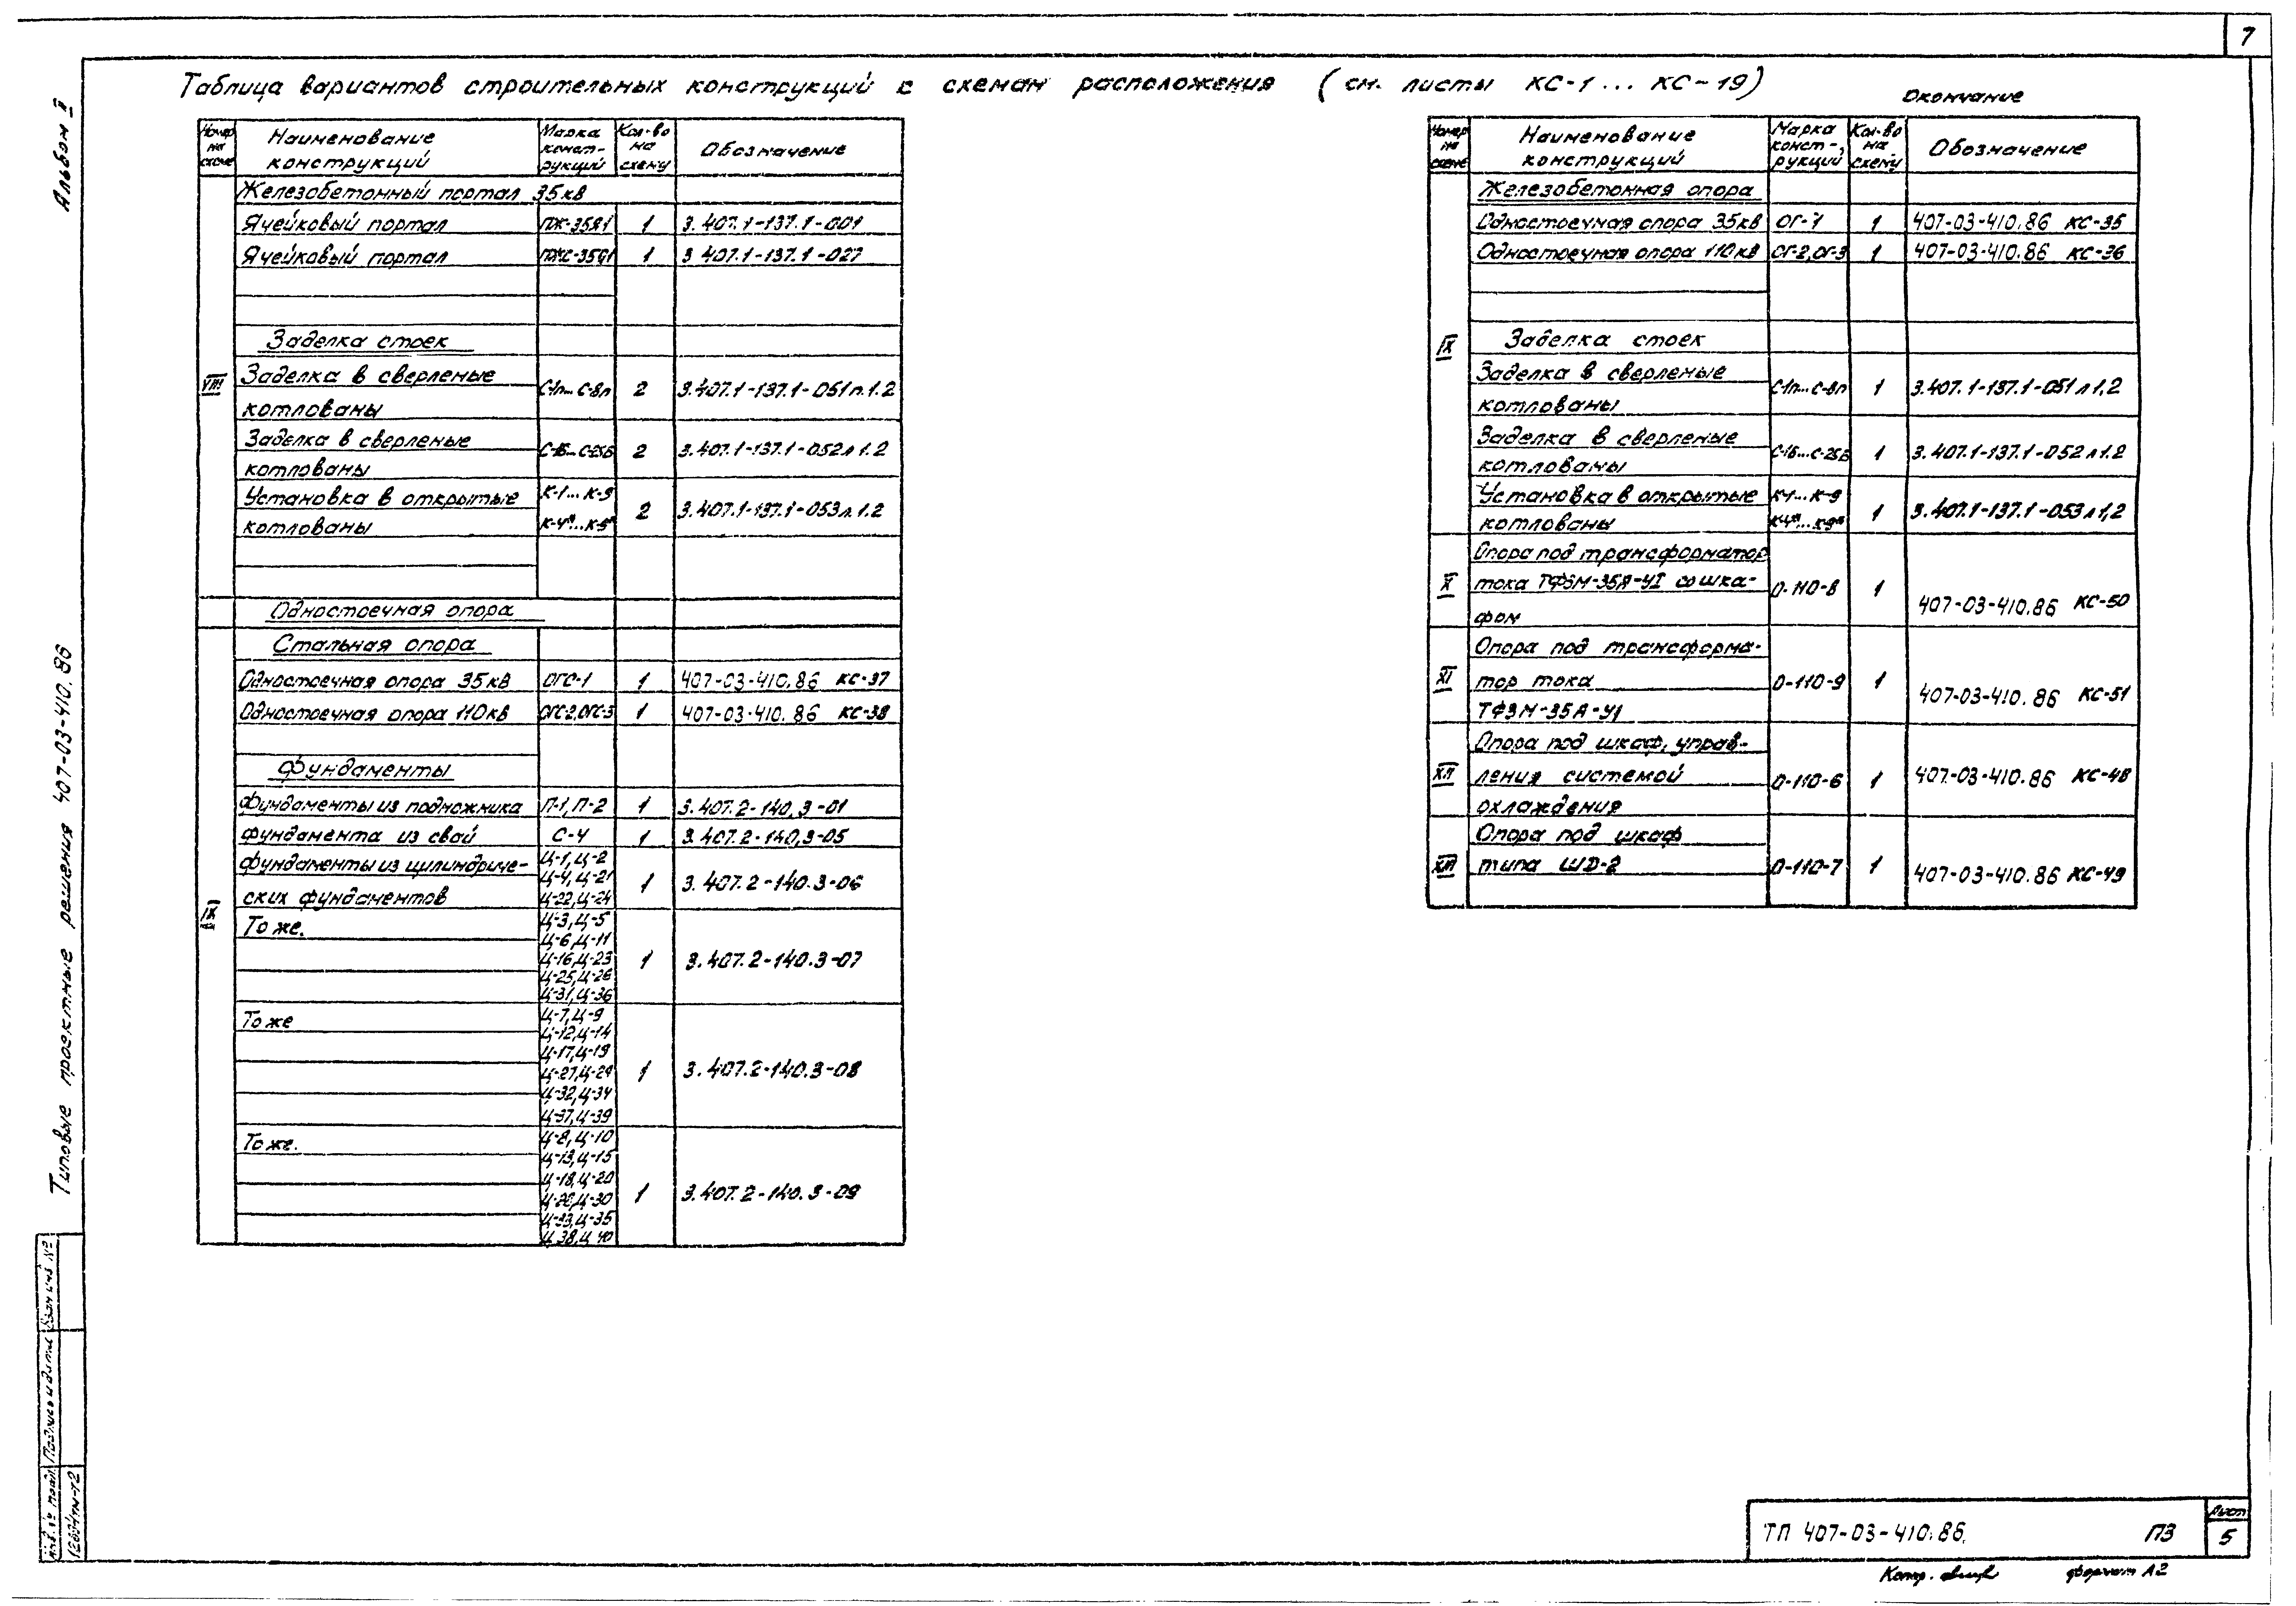 7
Альбом II
Типовые проектные решения 407-03-410.86
Таблица вариантов строительных конструкций к схемам расположения (см. листы КС-1 ... КС-19)
Окончание
Номер на схеме
Наименование конструкций
Марка конст-рукций
Кол-во на схему
Обозначение
Железобетонный портал 35кв
Ячейковый портал ПЖ-35Я1 1 3.407.1-137.1-001
Ячейковый портал ПЖС-35Я1 1 3 407.1-137.1-027
VIII
Заделка стоек
Заделка в сверленые
котлованы С-1п...С-8п 2 3.407.1-137.1-051л.1.2
Заделка в сверленые
котлованы С-1б...С-25б 2 3.407.1-137.1-052л1.2
Установка в открытые К-1...К-9
котлованы К-4ᴺ...К-9ᴺ 2 3.407.1-137.1-053л.1.2
Одностоечная опора
Стальная опора
Одностоечная опора 35кв ОГС-1 1 407-03-410.86 КС-37
Одностоечная опора 110кв ОГС-2,ОГС-3 1 407-03-410.86 КС-38
Фундаменты
Фундаменты из подножника П-1,П-2 1 3.407.2-140,3-01
Фундамента из свай С-4 1 3.407.2-140,3-05
IX
Фундаменты из цилиндриче-
ских фундаментов 1 3.407.2-140.3-06
Ц-1,Ц-2
Ц-4,Ц-21
Ц-22,Ц-24
То же. 1 3.407.2-140.3-07
Ц-3,Ц-5
Ц-6,Ц-11
Ц-16,Ц-23
Ц-25,Ц-26
Ц-31,Ц-36
То же 1 3.407.2-140.3-08
Ц-7,Ц-9
Ц-12,Ц-14
Ц-17,Ц-19
Ц-27,Ц-29
Ц-32,Ц-34
Ц-37,Ц-39
То же. 1 3.407.2-140.3-09
Ц-8,Ц-10
Ц-13,Ц-15
Ц-18,Ц-20
Ц-28,Ц-30
Ц-33,Ц-35
Ц 38,Ц 40
Номер на схеме
Наименование конструкций
Марка конст-рукций
Кол-во на схему
Обозначение
Железобетонная опора
Одностоечная опора 35кв ОГ-1 1 407-03-410.86 КС-35
Одностоечная опора 110кв ОГ-2,ОГ-3 1 407-03-410.86 КС-36
IX
Заделка стоек
Заделка в сверленые
котлованы С-1п...С-8п 1 3.407.1-137.1-051л1,2
Заделка в сверленые
котлованы С-1б...С-25б 1 3.407.1-137.1-052л1.2
Установка в открытые К-1...К-9
котлованы К-4ᴺ...К-9ᴺ 1 3.407.1-137.1-053л1,2
X
Опора под трансформатор
тока ТФЗМ-35А-У1 со шка-
фом О-110-8 1 407-03-410.86 КС-50
XI
Опора под трансформа-
тор тока О-110-9 1 407-03-410.86 КС-51
ТФЗМ-35А-У1
XII
Опора под шкаф, управ-
ления системой О-110-6 1 407-03-410.86 КС-48
охлаждения
XIII
Опора под шкаф
типа ШД-2 О-110-7 1 407-03-410.86 КС-49
Инв.№ подл.
Подпись и дата
Взам инв №
ТП 407-03-410.86. ПЗ
Лист
5
Копир.
формат А2